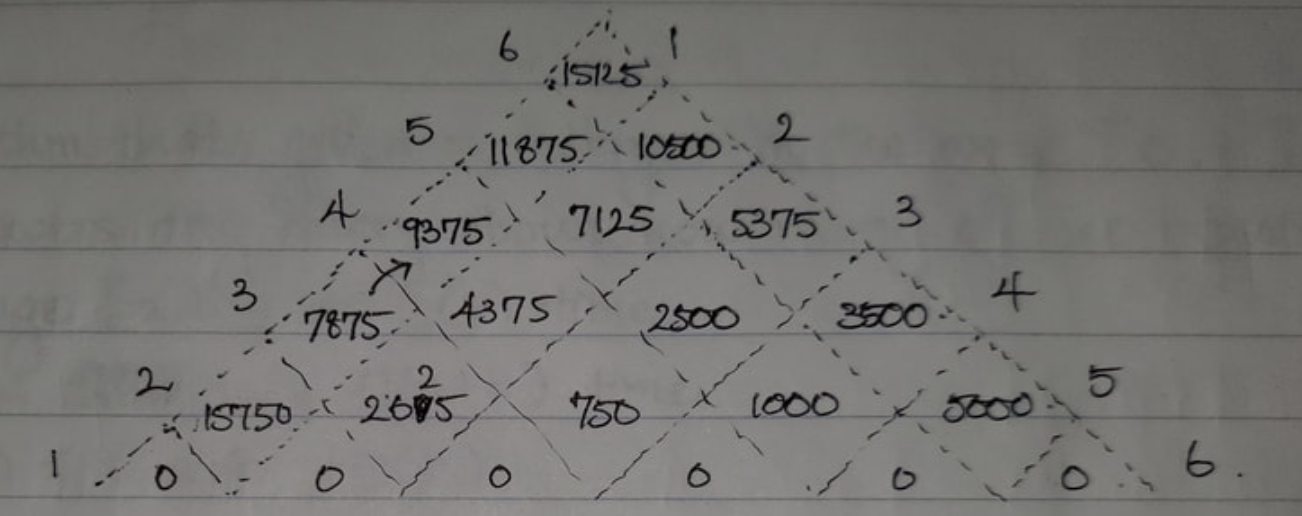 6 15125 1
5 11875 10500 2
4 9375 7125 5375 3
3 7875 4375 2500 3500 4
2 15750 2625 750 1000 5000 5
1 0 0 0 0 0 0 6.